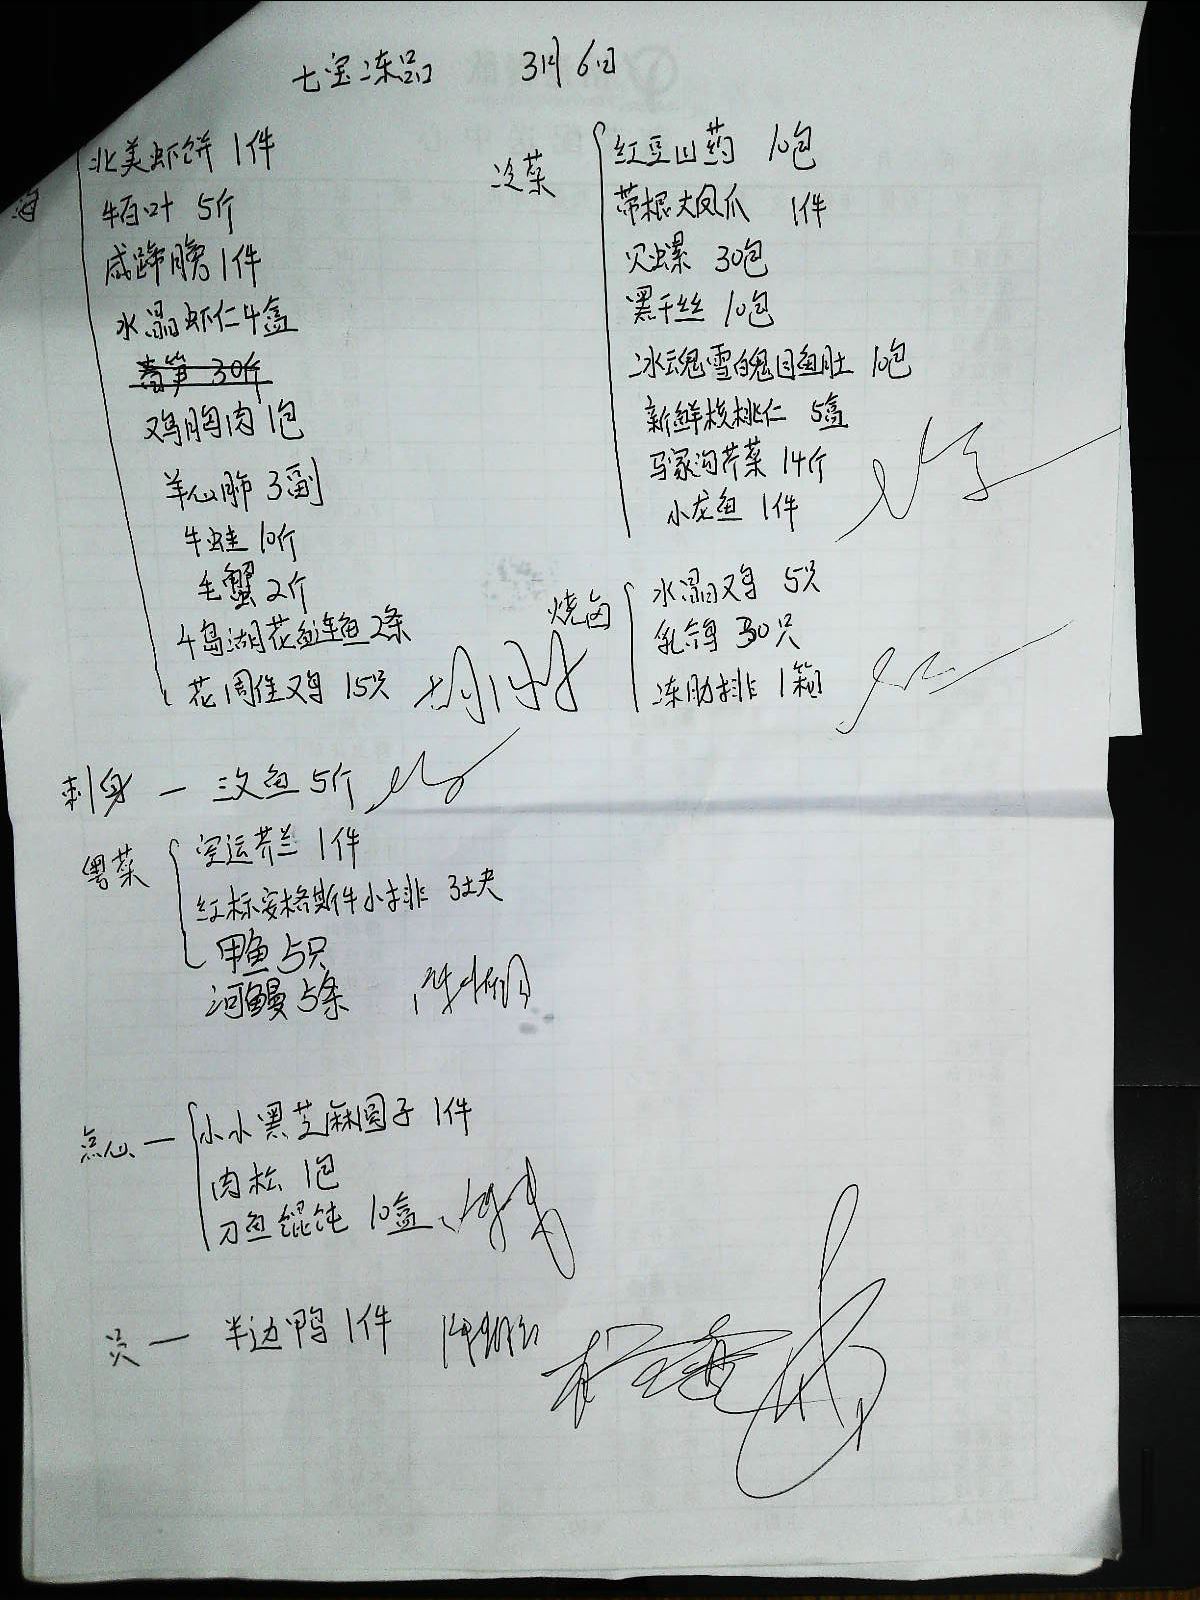 七宝冻品 3月6日
海
北美虾饼 1件
牛百叶 5斤
咸蹄膀 1件
水晶虾仁 4盒
鸡胸肉 1包
羊心肺 3副
牛蛙 10斤
毛蟹 2斤
千岛湖花鲢鱼 2条
花周住鸡 15只
冷菜
红豆山药 10包
带根大凤爪 1件
贝螺 30包
黑千丝 10包
冰魂雪魄目鱼肚 10包
新鲜核桃仁 5盒
马家沟芹菜 14斤
小龙鱼 1件
烧卤
水晶鸡 5只
乳鸽 30只
冻肋排 1箱
刺身 — 三文鱼 5斤
粤菜
空运芥兰 1件
红标安格斯牛小排 3块
甲鱼 5只
河鳗 5条
点心 —
小小黑芝麻圆子 1件
肉松 1包
刀鱼馄饨 10盒
员 — 半边鸭 1件